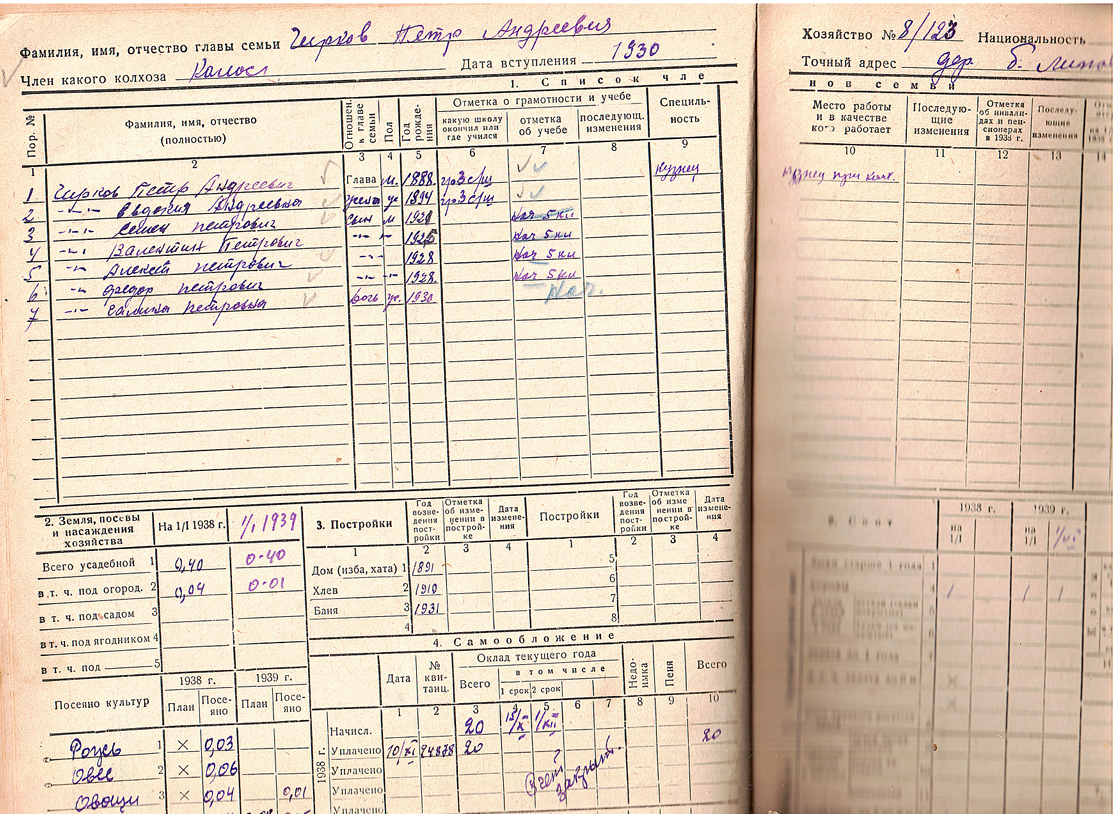 Фамилия, имя, отчество главы семьи Чирков Петр Андреевич
Член какого колхоза Колос Дата вступления 1930
Хозяйство № 8/123 Национальность
Точный адрес дер. б.
1. Список чле
нов семьи
Пор. № Фамилия, имя, отчество (полностью) Отношен. к главе семьи Пол Год рождения Отметка о грамотности и учебе Специльность
какую школу окончил или где учился отметка об учебе последующ. изменения
Место работы и в качестве кого работает Последующие изменения Отметка об инвалидах и пенсионерах в 1938 г. Последующие изменения
1 2 3 4 5 6 7 8 9 10 11 12 13 14
1 Чирков Петр Андреевич Глава м. 1888. гр 3 с/ш кузнец кузнец при колх.
2 -"- Евдокия Андреевна жена ж 1894 гр 3 с/ш
3 -"- Семен Петрович сын м 1920 нач 5 кл
4 -"- Валентин Петрович -"- -"- 1925 нач 5 кл
5 -"- Алексей Петрович -"- 1928 нач 5 кл
6 -"- Федор Петрович -"- -"- 1928. нач 5 кл
7 -"- Галина Петровна дочь ж. 1930 нач.
2. Земля, посевы и насаждения хозяйства На 1/I 1938 г. 1/I 1939
Всего усадебной 1 0,40 0-40
в т. ч. под огород. 2 0,04 0-01
в т. ч. под садом 3
в т. ч. под ягодником 4
в т. ч. под 5
Посеяно культур 1938 г. 1939 г.
План Посеяно План Посеяно
Рожь 1 × 0,03
Овес 2 × 0,06
Овощи 3 × 0,04 0,01
3. Постройки Год возведения постройки Отметка об изменении в постройке Дата изменения Постройки Год возведения постройки Отметка об изменении в постройке Дата изменения
1 2 3 4 1 2 3 4
Дом (изба, хата) 1 1891 5
Хлев 2 1910 6
Баня 3 1931 7
4 8
4. Самообложение
Дата № квитанц. Оклад текущего года Недоимка Пеня Всего
Всего в том числе
1 срок 2 срок
1 2 3 4 5 6 7 8 9 10
1938 г.
Начисл. 20 15/X 1/XII 20
Уплачено 10/XI 24878 20
Уплачено
Уплачено
Уплачено
Счет закрыт.
Скот
1938 г. 1939 г.
на 1/I на 1/I 1/VI
1 1 1